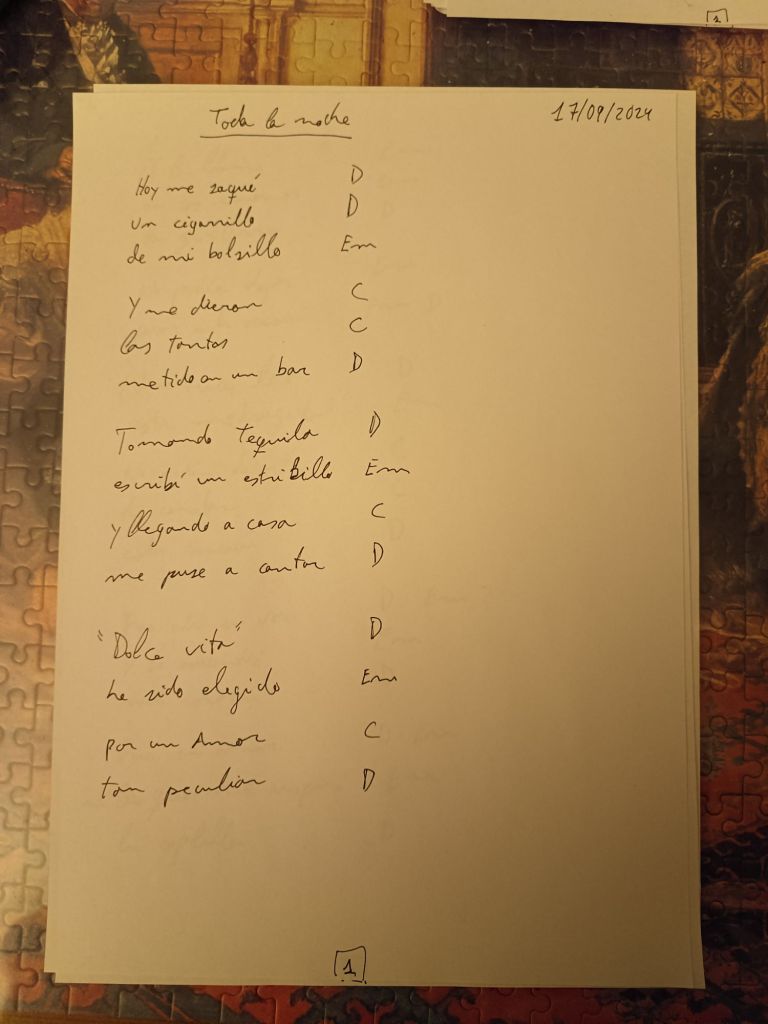 Toda la noche 17/09/2024
Hoy me saqué D
un cigarrillo D
de mi bolsillo Em
Y me dieron C
las tantas C
metido en un bar D
Tomando tequila D
escribí un estribillo Em
y llegando a casa C
me puse a cantar D
"Dolce vita" D
he sido elegido Em
por un Amor C
tan peculiar D
1